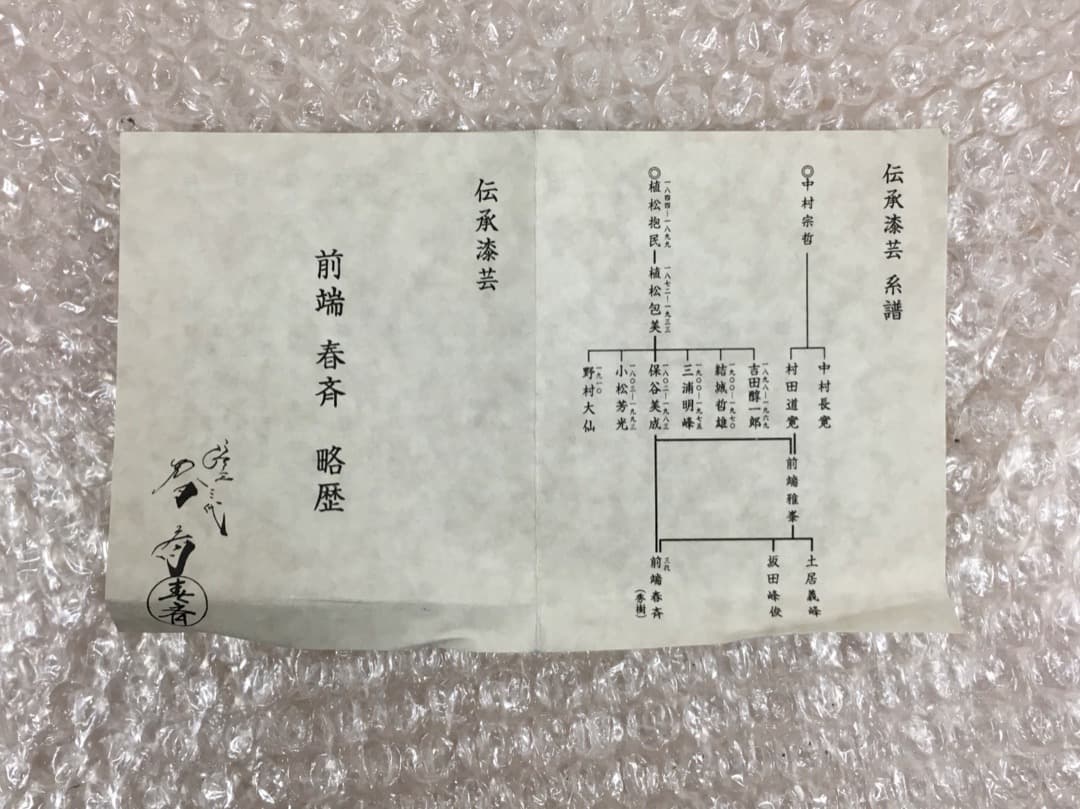 伝承漆芸 系譜
◎中村宗哲
中村長寛
村田道寛
前端雅峯
土居義峰
坂田峰俊
◎植松抱民
一八四四−一八九九
植松包美
一八七二−一九三三
吉田醇一郎
一八九八−一九六九
結城哲雄
一九〇〇−一九七〇
三浦明峰
一九〇〇−一九七五
保谷美成
一八〇二−一九八三
小松芳光
一八〇三−一九九三
野村大仙
一九一〇
三代
前端春斉
(春樹)
伝承漆芸
前端 春斉 略歴
三代
春斉